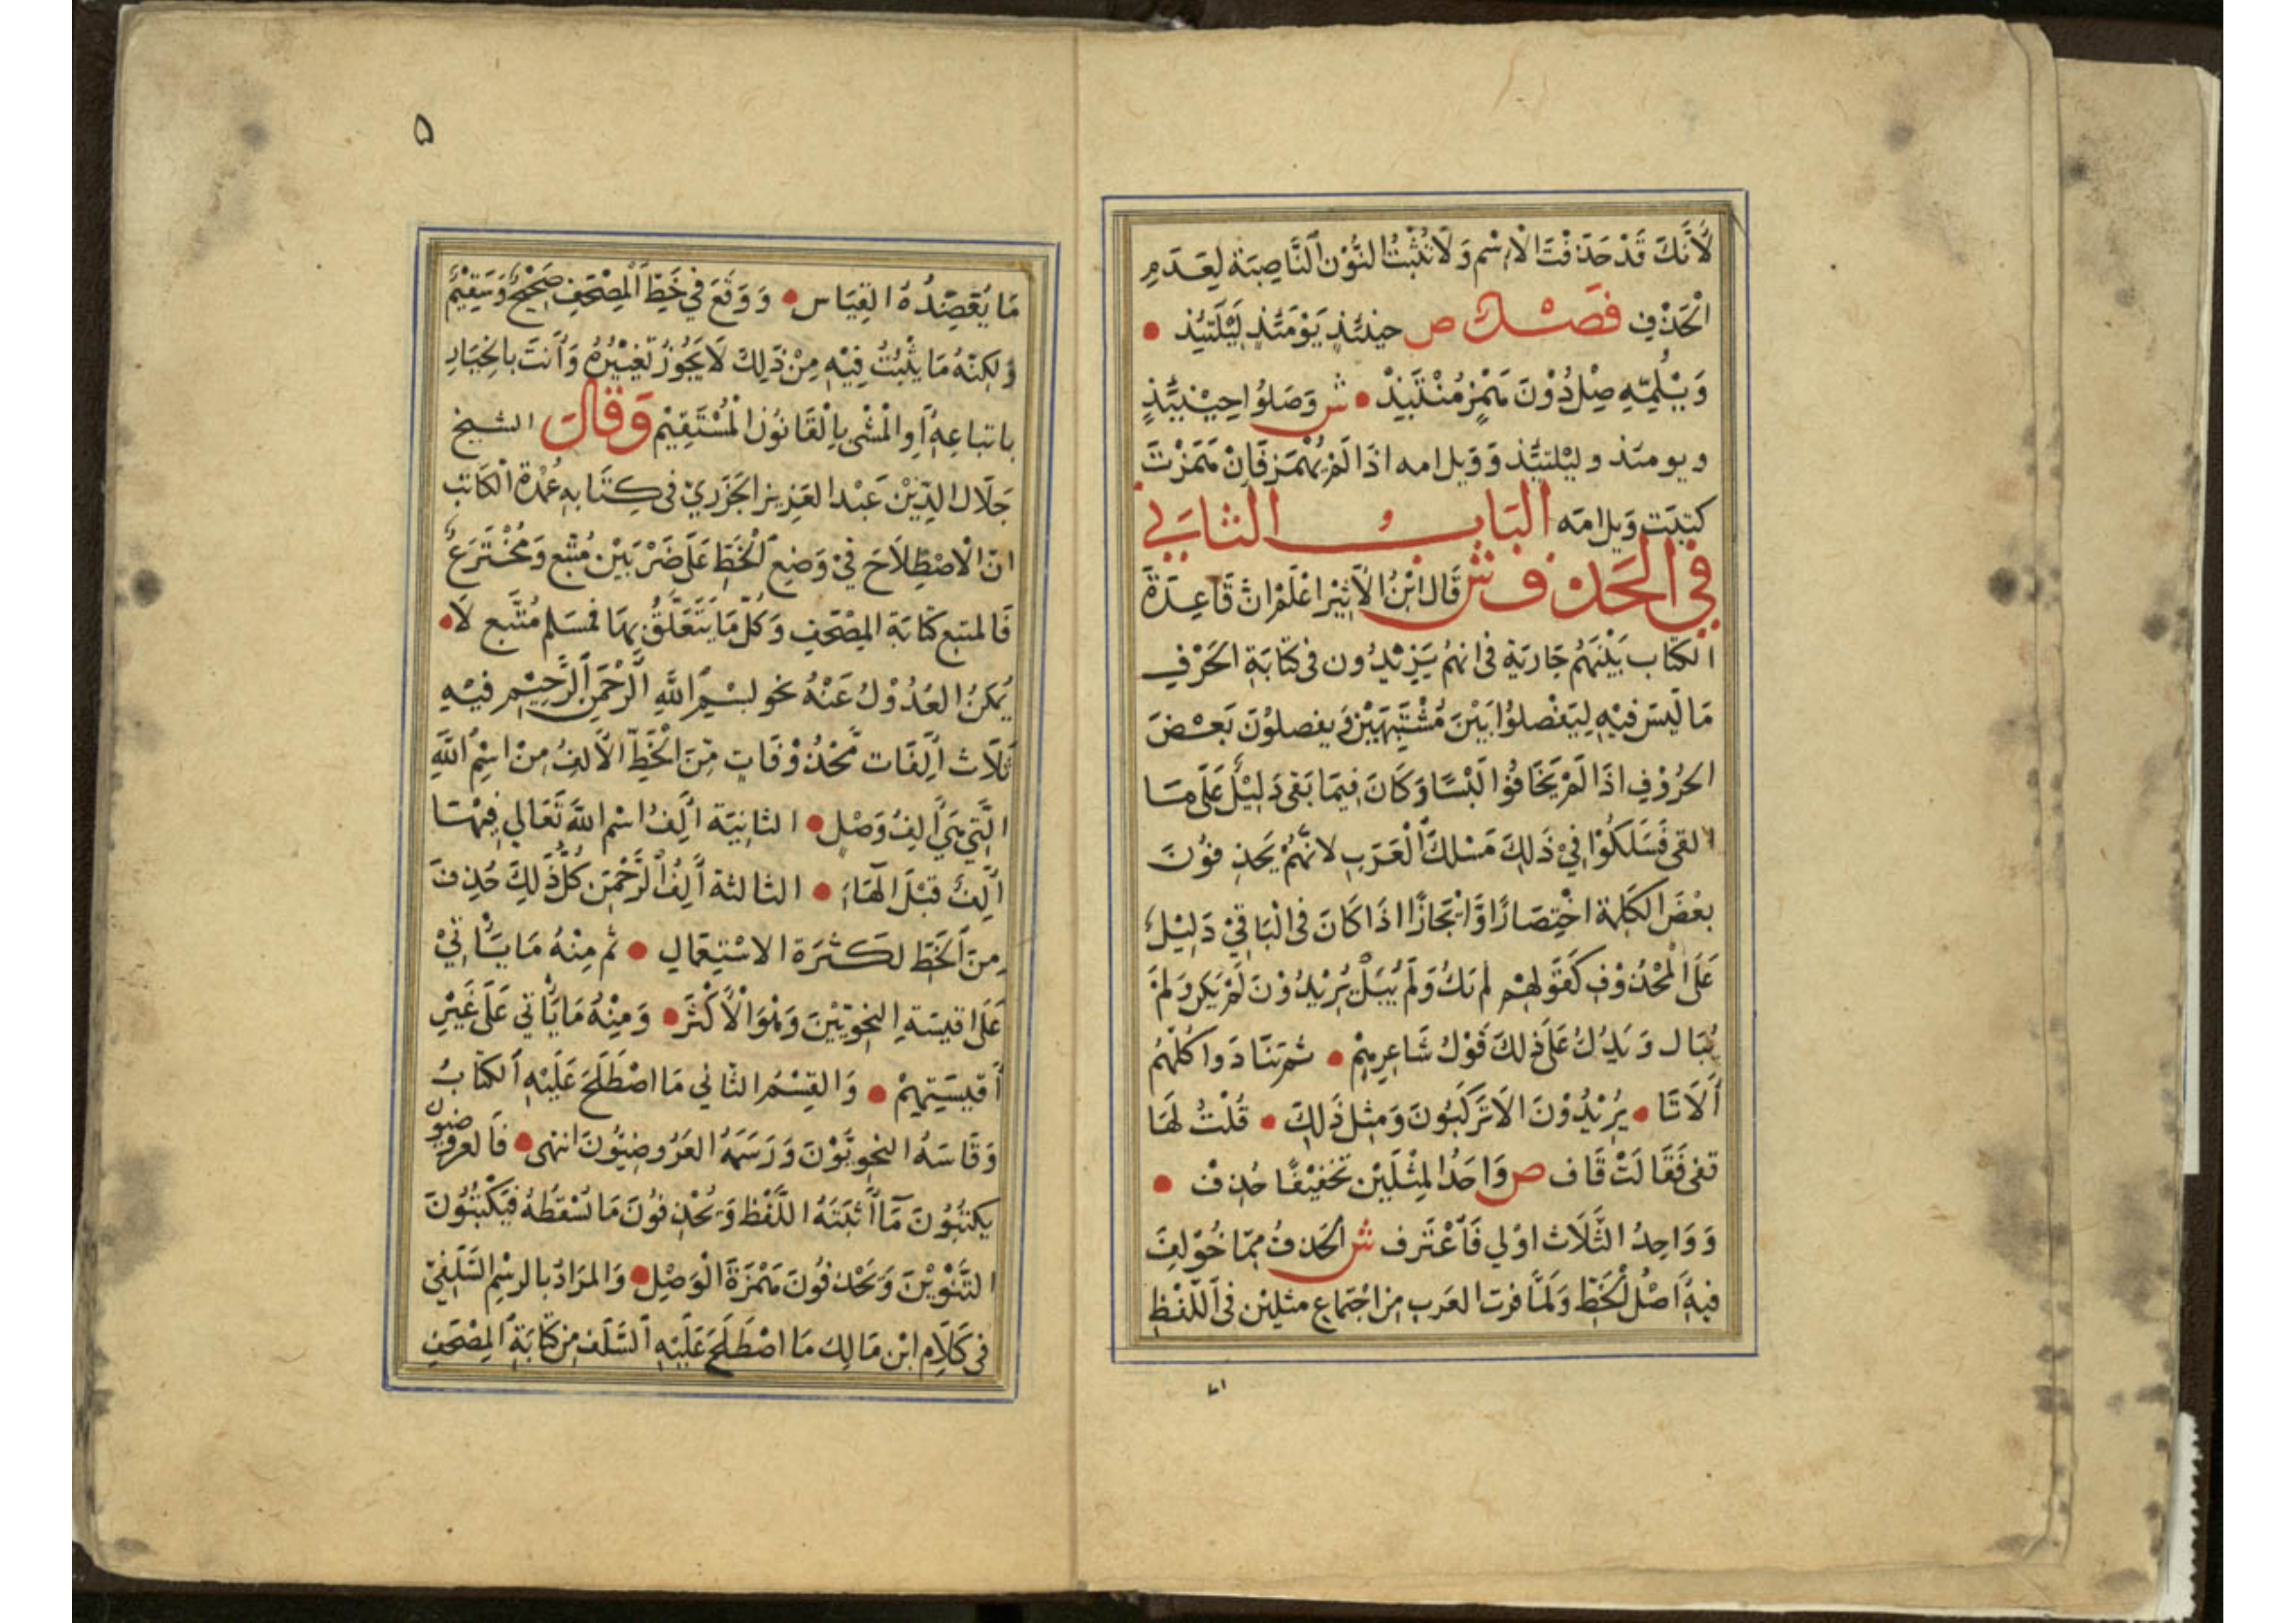 لِأَنَّكَ قَدْ حَذَفْتَ الْاِسْم وَلَا تُثْبِتُ النُّوْن النَّاصِبَة لِعَدَمِ
الْحَذْفِ فَصْـــل ص حِيْنَئِذٍ يَوْمَئِذٍ لَيْلَتَئِذ •
وَيْلُمِّهِ صِلْ دُوْنَ هَمْزٍ مُنْتَبِذْ • ش وَصَلُوا حِيْنَئِذٍ
ويومئذ وليلتئذ وَوَيل امه اذَا لَمْ يُهْمَز فَإِنْ هَمَزْتَ
كتبت وَيل امّه البَابُ الثَّانِي
فِي الحَذْف ش قَال ابْنُ الْأَثِيْر اعْلَمْ انّ قَاعِدَةَ
الكتاب بَيْنَهُم جَارية فى انهُم يَزِيْدُون فى كتَابَة الحَرْفِ
مَا لَيسَ فيْهِ لِيَفْصِلُوا بَيْنَ مُشْتَبِهَيْن وَ يفصلوْنَ بَعْضَ
الحُرُوْفِ اذَا لَمْ يَخَافُوْا لَبْسًا وَكَانَ فِيمَا بَقى دَلِيْلٌ عَلَى مَا
القى فَسَلَكُوْا فِيْ ذَلِكَ مَسْلكَ الْعَرَبِ لانَّهُمْ يَحْذِفُوْنَ
بعْضَ الكَلِمَة اخْتِصَارًا وَّاِيْجَازًا اذَا كَانَ فى الْبَاقِيْ دَلِيْل
عَلَى الْمَحْذُوْفِ كَقَوْلِهِمْ لم يَكُ وَلَمْ يُبَلْ يُرِيْدُوْنَ لَمْ يَكن وَلَمْ
يُبَال وَيَدُلُّ عَلَى ذَلكَ قَوْلُ شَاعِرِهِمْ • ثم تَنَادَوا كلّهُم
أَلَا تَا • يُرِيْدُوْنَ الاَ تَرْكَبُونَ وَمِثل ذَلِكَ • قُلْتُ لَهَا
قفى فَقَالَتْ قَاف ص وَاحدُ المِثْلَيْن تَخْفِيْفًا حُذِفْ •
وَوَاحِدُ الثَّلَاث اوْلي فَاعْتَرِف ش الحَذفُ ممّا خُوْلِفَ
فيهِ أَصْلُ الْخَطِّ وَلَمَّا فرت العَرب مِن اجْتِمَاع مثلين فى اللَّفْظ
٥
مَا يُعَضِّدُهُ القِيَاس • وَوَقَعَ فى خَطِّ الْمُصْحَفِ صَحِيْحٌ وَسَقِيْمٌ
وَلكِنّهُ مَا يثْبُتُ فِيْهِ مِنْ ذَلِكَ لَا يَجُوْزُ تَغْيِيْرُهُ وَأَنتَ بالْخِيَارِ
باتباعِهِ أَوِ الْمَشْي بِالْقَانُوْن الْمُسْتَقِيْم وَقَال الشيخ
جَلَال الدِّيْن عَبْد العَزِيز الجَزَرِيّ فى كِتَابهِ عُمْدَةُ الْكَاتِب
انّ الْاصْطِلَاحَ فِيْ وَضِع الْخَطِّ عَلَى ضَرْبَيْن مُتَّبع وَمُخْتَرَع
فَالمتبع كتابَة المصْحَفِ وَكُلّ مَا يَتَعَلَّقُ بِهَا فمسَلم مُتَّبع لَا •
يُمْكِنُ العُدُوْلُ عَنْهُ نحو بِسْمِ اللّٰهِ الرَّحْمَنِ الرَّحِيْمِ فيْهِ
ثَلَاث أَلِفَات مَّحْذُوْفَاتٍ مِّنَ الْخَطِّ الأَلِفُ مِنْ اسْمِ اللَّهِ
الَّتِي هِيَ أَلِفُ وَصْلٍ • الثانِيَة أَلِفُ اسْم اللَّهِ تَعَالى فِيْهَا
أَلِفٌ قَبْلَ الْهَاءِ • الثالثة أَلِفُ الرَّحْمَنِ كُلُّ ذَلِكَ حُذِفَ
مِنَ الْخَطِّ لكَثرَة الاسْتِعمَالِ • ثُم مِنْهُ مَا يَأْتِيْ
عَلَى اقيسَةِ النحوِيّيْنَ وَهْوَ الْأَكْثَرُ • وَمِنْهُ مَا يَأْتي عَلَى غَيْرِ
أقيسَتِهِمْ • وَالقِسْمُ الثَّاني مَا اصْطَلَحَ عَلَيْهِ الكتَابُ
وَقَاسَهُ النحويّوْنَ وَرَسَمَهُ العَرُوضِيُّونَ انتهى • فَالعروضيون
يكتبُوْنَ مَا أَثْبَتَهُ اللَّفْظ وَيَحْذِفُوْنَ مَا تُسْقطُهُ فيَكْتبُوْنَ
التَّنْوِيْنَ وَيَحْذفُوْنَ هَمْزَةَ الْوَصْلِ • وَالمرَادُ بالرسْمِ السَّلَفِيّ
فى كَلَامِ ابْن مَالِك مَا اصْطَلَحَ عَلَيْهِ السَّلَف مِن كتَابَةِ المصْحَفِ